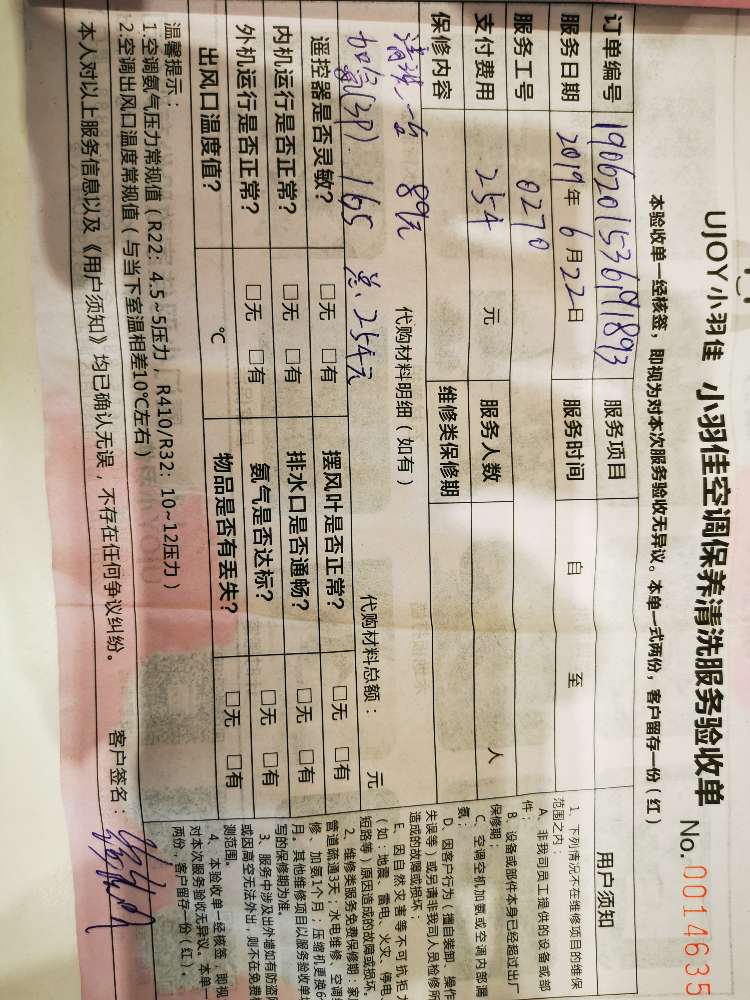 UJOY小羽佳 小羽佳空调保养清洗服务验收单 No. 0014635
本验收单一经核签，即视为对本次服务验收无异议。本单一式两份，客户留存一份（红）
订单编号 190620153619893 服务项目
服务日期 2019年6月22日 服务时间 自 至
服务工号 0270
支付费用 254 元 服务人数 人
保修内容 维修类保修期
代购材料明细（如有） 代购材料总额： 元
清洗一台 89元
加氨(3P) 165 总：254元
遥控器是否灵敏？ □无 □有 摆风叶是否正常？ □无 □有
内机运行是否正常？ □无 □有 排水口是否通畅？ □无 □有
外机运行是否正常？ □无 □有 氨气是否达标？ □无 □有
出风口温度值？ ℃ 物品是否有丢失？ □无 □有
温馨提示：
1.空调氨气压力常规值（R22：4.5~5压力，R410/R32：10~12压力）
2.空调出风口温度常规值（与当下室温相差10℃左右）
本人对以上服务信息以及《用户须知》均已确认无误，不存在任何争议纠纷。
客户签名：
用户须知
1、下列情况不在维修项目的维保
范围之内：
A、非我司员工提供的设备或部
件；
B、设备或部件本身已经超过出厂
保修期；
C、空调空机加氨或空调内部漏
氨；
D、因客户行为（擅自装卸、操作
失误等）或另请非我司人员检修所
造成的故障或损坏；
E、因自然灾害等不可抗拒
（如：地震、雷电、火灾、停电
短路等）原因造成的故障或损坏。
2、维修类服务免费保修期：家
管道疏通3天；水电维修、空调
修、加氨1个月；压缩机更换6
月。其他维修项目以服务验收单
写的保修期为准。
3、服务中涉及出外墙如有防盗
或因高空无法外出，则不在免费
测范围。
4、本验收单一经核签，即视
对本次服务验收无异议。本单一
两份，客户留存一份（红）。